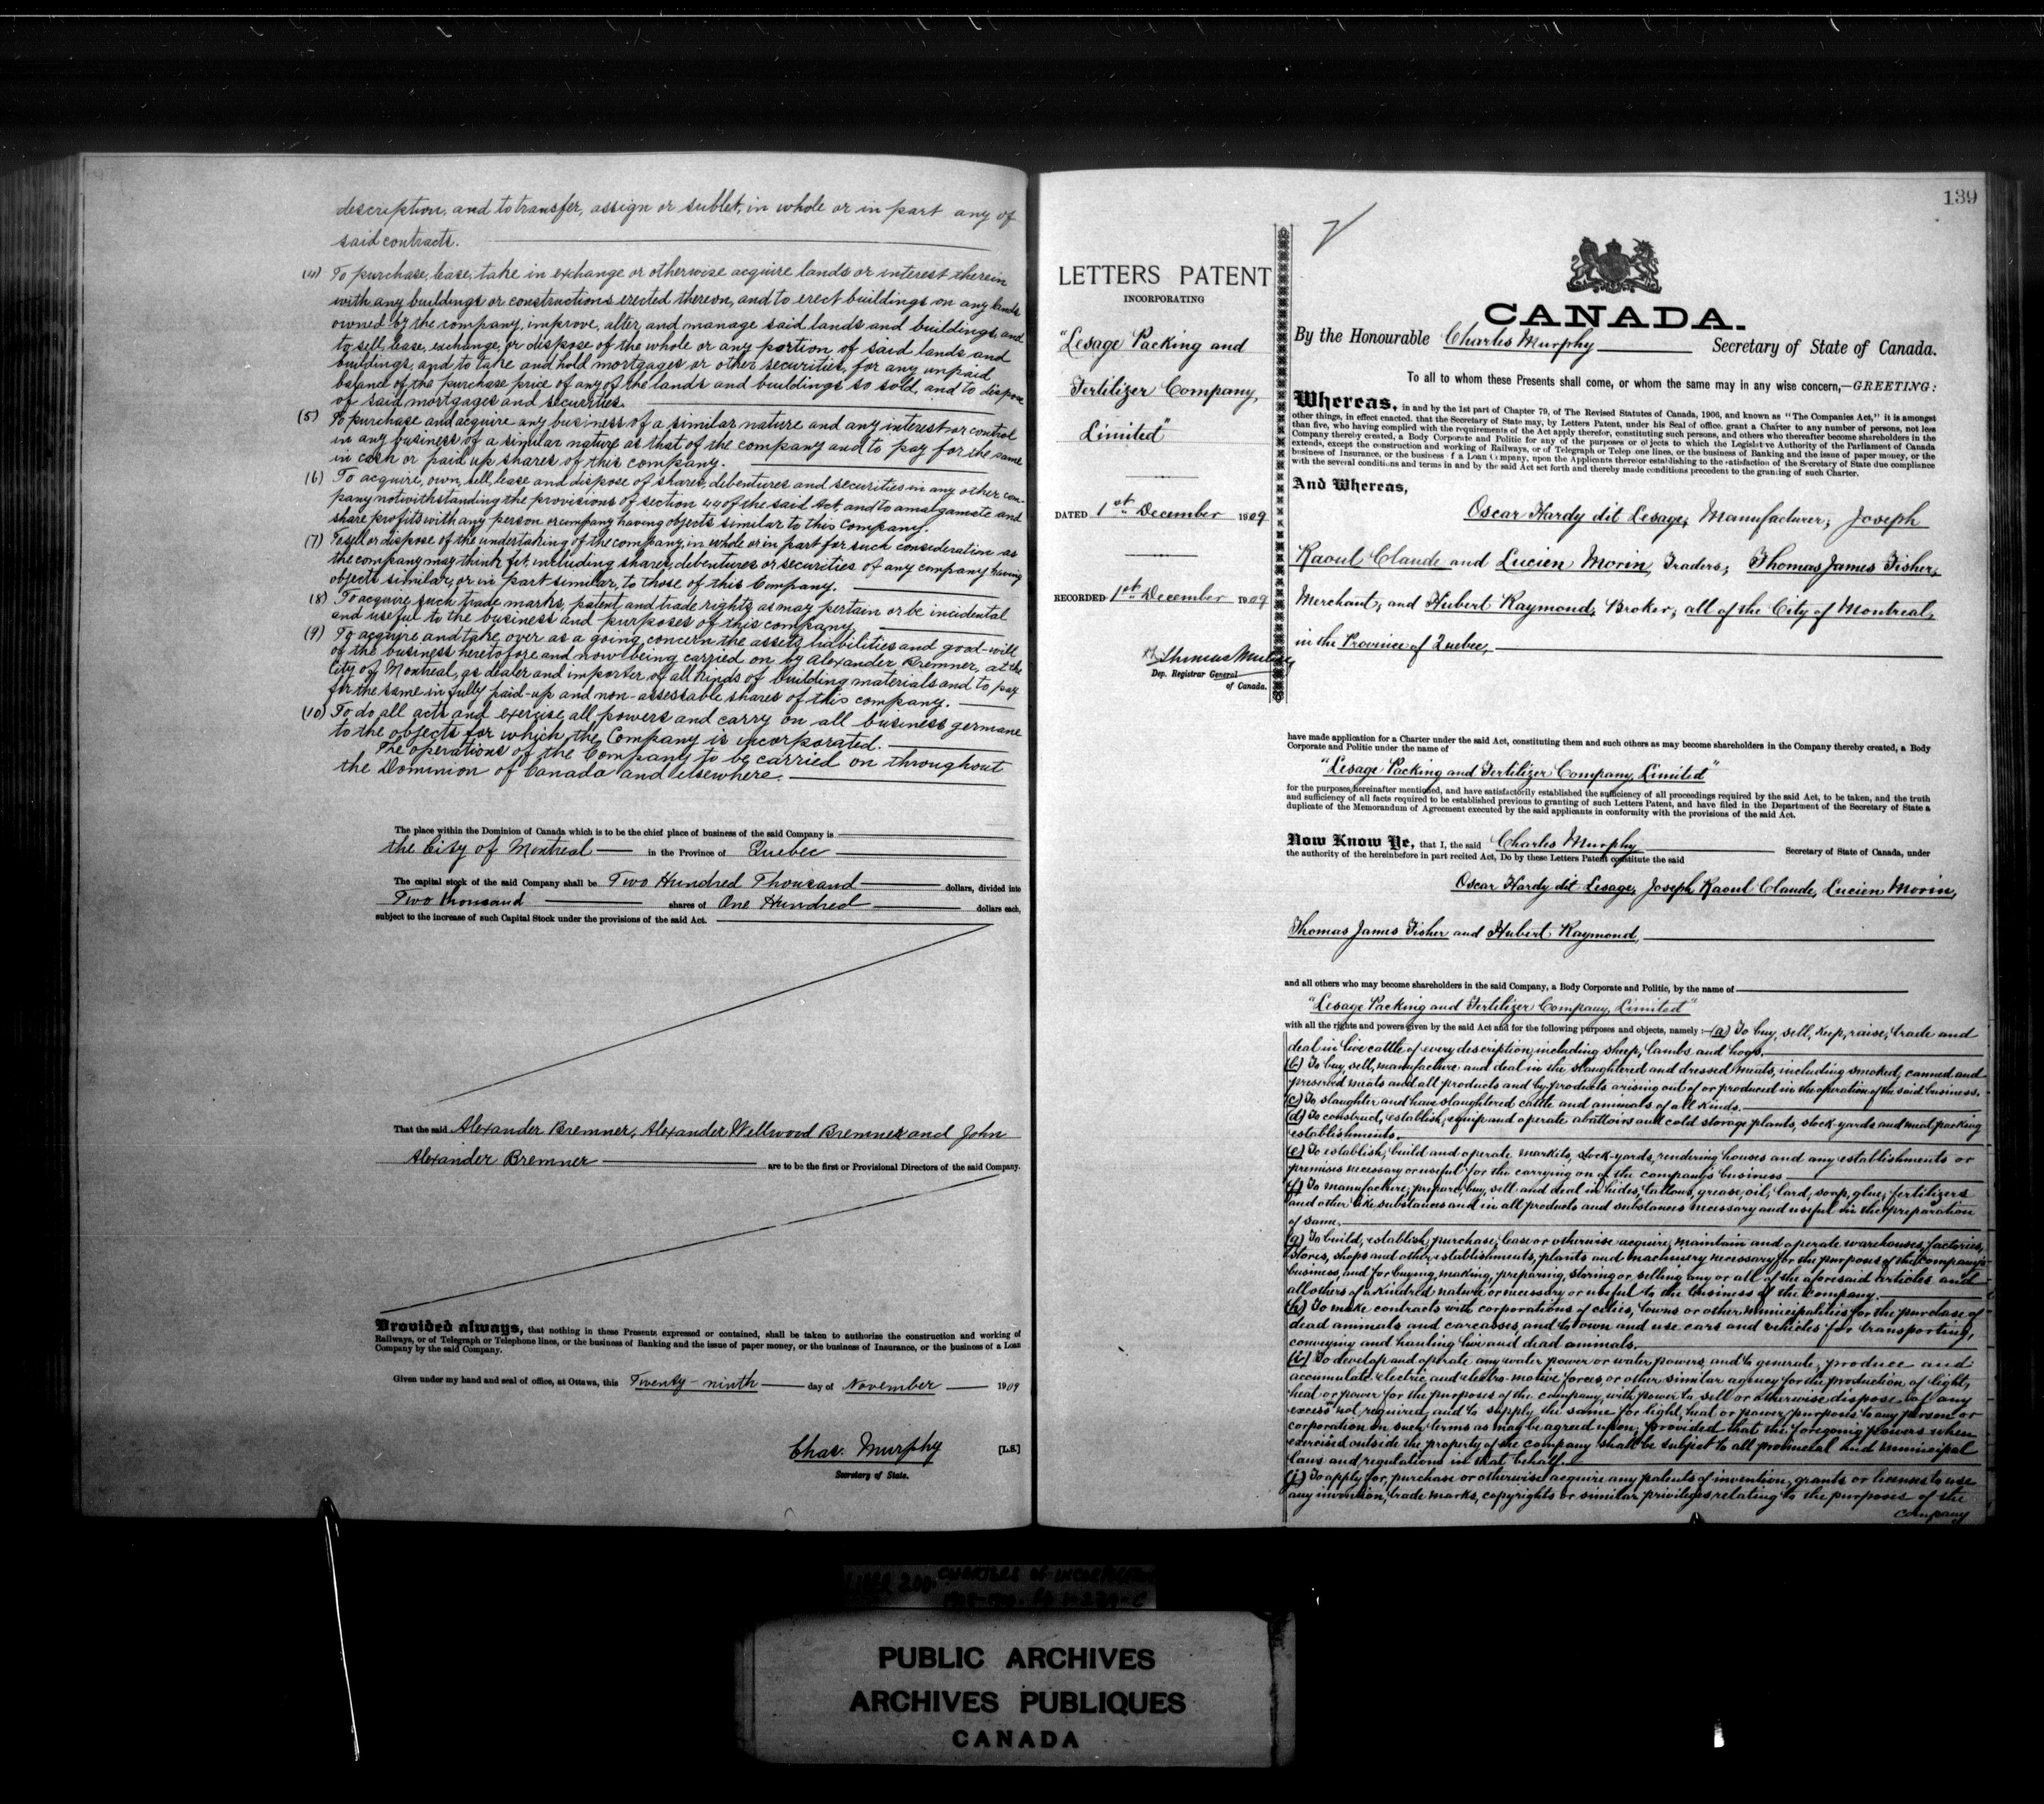 description, and to transfer, assign or sublet, in whole or in part any of
said contracts.
(4) To purchase, lease, take in exchange or otherwise acquire lands or interest therein
with any buildings or constructions erected thereon, and to erect buildings on any lands
owned by the company, improve, alter, and manage said lands and buildings, and
to sell, lease, exchange, or dispose of the whole or any portion of said lands and
buildings, and to take and hold mortgages or other securities, for any unpaid
balance of the purchase price of any of the lands and buildings so sold, and to dispose
of said mortgages and securities.
(5) To purchase and acquire any business of a similar nature and any interest or control
in any business of a similar nature as that of the company and to pay for the same
in cash or paid up shares of this company.
(6) To acquire, own, sell, lease and dispose of shares, debentures and securities in any other com-
pany notwithstanding the provisions of section 44 of the said Act, and to amalgamate and
share profits with any person or company having objects similar to this Company.
(7) To sell or dispose of the undertaking of the company, in whole or in part for such consideration as
the company may think fit, including shares, debentures or securities of any company having
objects similar, or in part similar, to those of this Company.
(8) To acquire such trade marks, patent and trade rights as may pertain or be incidental
and useful to the business and purposes of this company.
(9) To acquire and take over as a going concern the assets, liabilities and good-will
of the business heretofore and now being carried on by Alexander Bremner, at the
City of Montreal, as dealer and importer of all kinds of building materials and to pay
for the same in fully paid-up and non-assessable shares of this company.
(10) To do all acts and exercise all powers and carry on all business germane
to the objects for which the Company is incorporated.
The operations of the Company to be carried on throughout
the Dominion of Canada and elsewhere.
The place within the Dominion of Canada which is to be the chief place of business of the said Company is
the City of Montreal in the Province of Quebec
The capital stock of the said Company shall be Two Hundred Thousand dollars, divided into
Two thousand shares of One Hundred dollars each,
subject to the increase of such Capital Stock under the provisions of the said Act.
That the said Alexander Bremner, Alexander Wellwood Bremner and John
Alexander Bremner are to be the first or Provisional Directors of the said Company.
Provided always, that nothing in these Presents expressed or contained, shall be taken to authorize the construction and working of
Railways, or of Telegraph or Telephone lines, or the business of Banking and the issue of paper money, or the business of Insurance, or the business of a Loan
Company by the said Company.
Given under my hand and seal of office, at Ottawa, this Twenty-ninth day of November 1909
Chas. Murphy [L.S.]
Secretary of State.
139
LETTERS PATENT
INCORPORATING
"Lesage Packing and
Fertilizer Company,
Limited"
DATED 1st December 1909
RECORDED 1st December 1909
Dep. Registrar General
of Canada.
CANADA.
By the Honourable Charles Murphy Secretary of State of Canada.
To all to whom these Presents shall come, or whom the same may in any wise concern,—GREETING:
Whereas, in and by the 1st part of Chapter 79, of The Revised Statutes of Canada, 1906, and known as "The Companies Act," it is amongst
other things, in effect enacted, that the Secretary of State may, by Letters Patent, under his Seal of office, grant a Charter to any number of persons, not less
than five, who having complied with the requirements of the Act apply therefor, constituting such persons, and others who thereafter become shareholders in the
Company thereby created, a Body Corporate and Politic for any of the purposes or objects to which the Legislative Authority of the Parliament of Canada
extends, except the construction and working of Railways, or of Telegraph or Telephone lines, or the business of Banking and the issue of paper money, or the
business of Insurance, or the business of a Loan Company, upon the Applicants therefor establishing to the satisfaction of the Secretary of State due compliance
with the several conditions and terms in and by the said Act set forth and thereby made conditions precedent to the granting of such Charter.
And Whereas,
Oscar Hardy dit Lesage, Manufacturer, Joseph
Raoul Claude and Lucien Morin, Traders, Thomas James Fisher,
Merchant, and Hubert Raymond, Broker, all of the City of Montreal,
in the Province of Quebec,
have made application for a Charter under the said Act, constituting them and such others as may become shareholders in the Company thereby created, a Body
Corporate and Politic under the name of
"Lesage Packing and Fertilizer Company, Limited"
for the purposes hereinafter mentioned, and have satisfactorily established the sufficiency of all proceedings required by the said Act, to be taken, and the truth
and sufficiency of all facts required to be established previous to granting of such Letters Patent, and have filed in the Department of the Secretary of State a
duplicate of the Memorandum of Agreement executed by the said applicants in conformity with the provisions of the said Act.
Now Know Ye, that I, the said Charles Murphy Secretary of State of Canada, under
the authority of the hereinbefore in part recited Act, Do by these Letters Patent constitute the said
Oscar Hardy dit Lesage, Joseph Raoul Claude, Lucien Morin,
Thomas James Fisher and Hubert Raymond,
and all others who may become shareholders in the said Company, a Body Corporate and Politic, by the name of
"Lesage Packing and Fertilizer Company, Limited"
with all the rights and powers given by the said Act and for the following purposes and objects, namely :—(a) To buy, sell, keep, raise, trade and
deal in live cattle of every description, including sheep, lambs and hogs.
(b) To buy, sell, manufacture and deal in the slaughtered and dressed meats, including smoked, canned and
preserved meats and all products and by-products arising out of or produced in the operation of the said business.
(c) To slaughter and have slaughtered cattle and animals of all kinds.
(d) To construct, establish, equip and operate abattoirs and cold storage plants, stock-yards and meat packing
establishments.
(e) To establish, build and operate markets, stock-yards, rendering houses and any establishments or
premises necessary or useful for the carrying on of the company's business
(f) To manufacture, prepare, buy, sell and deal in hides, tallows, grease, oil, lard, soap, glue, fertilizers
and other like substances and in all products and substances necessary and useful in the preparation
of same.
(g) To build, establish, purchase, lease or otherwise acquire, maintain and operate warehouses, factories,
stores, shops and other establishments, plants and machinery necessary for the purposes of the company's
business, and for buying, making, preparing, storing or selling any or all of the aforesaid articles and
all others of a kindred nature or necessary or useful to the business of the company.
(h) To make contracts with corporations of cities, towns or other municipalities for the purchase of
dead animals and carcasses, and to own and use cars and vehicles for transporting,
conveying and hauling live and dead animals.
(i) To develop and operate any water power or water powers, and to generate, produce and
accumulate electric and electro-motive forces, or other similar agency for the production of light,
heat or power for the purposes of the company, with power to sell or otherwise dispose of any
excess not required, and to supply the same for light, heat or power purposes to any person or
corporation on such terms as may be agreed upon, provided that the foregoing powers when
exercised outside the property of the company shall be subject to all provincial and municipal
laws and regulations in that behalf.
(j) To apply for, purchase or otherwise acquire any patents of invention, grants or licenses to use
any invention, trade marks, copyrights or similar privileges relating to the purposes of the
company
LIBER 200. CHARTERS OF INCORPORATION
PUBLIC ARCHIVES
ARCHIVES PUBLIQUES
CANADA